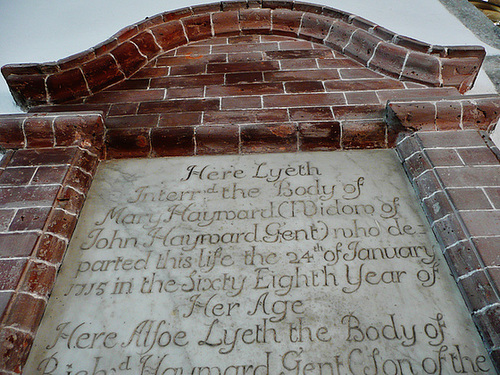 Here Lyeth
Interrd the Body of
Mary Hayward (Widow of
John Hayward Gent) who de-
parted this life the 24th of January
1715 in the Sixty Eighth Year of
Her Age
Here Alsoe Lyeth the Body of
Richd Hayward Gent (Son of the